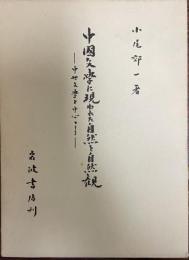 小尾郊一著
中国文学に現われた自然と自然観
——中世文学を中心として——
岩波書店刊